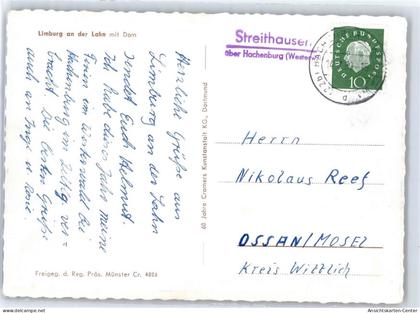 Limburg an der Lahn mit Dom
Herzliche Grüße aus
Limburg an der Lahn
sendet Euch Helmut.
Ich habe dieses Jahr meine
Ferien im Westerwald bei
Hachenburg im Zeltlg. ver-
bracht. Die besten Grüße
auch an Inge u. Rosi.
60 Jahre Cramers Kunstanstalt KG., Dortmund
Freigeg. d. Reg. Präs. Münster Cr. 4806
Streithausen
über Hachenburg (Westerw
DEUTSCHE BUNDESPOST
10
Herrn
Nikolaus Reef
OSSAN/MOSEL
Kreis Wittlich
Ansichtskarten-Center